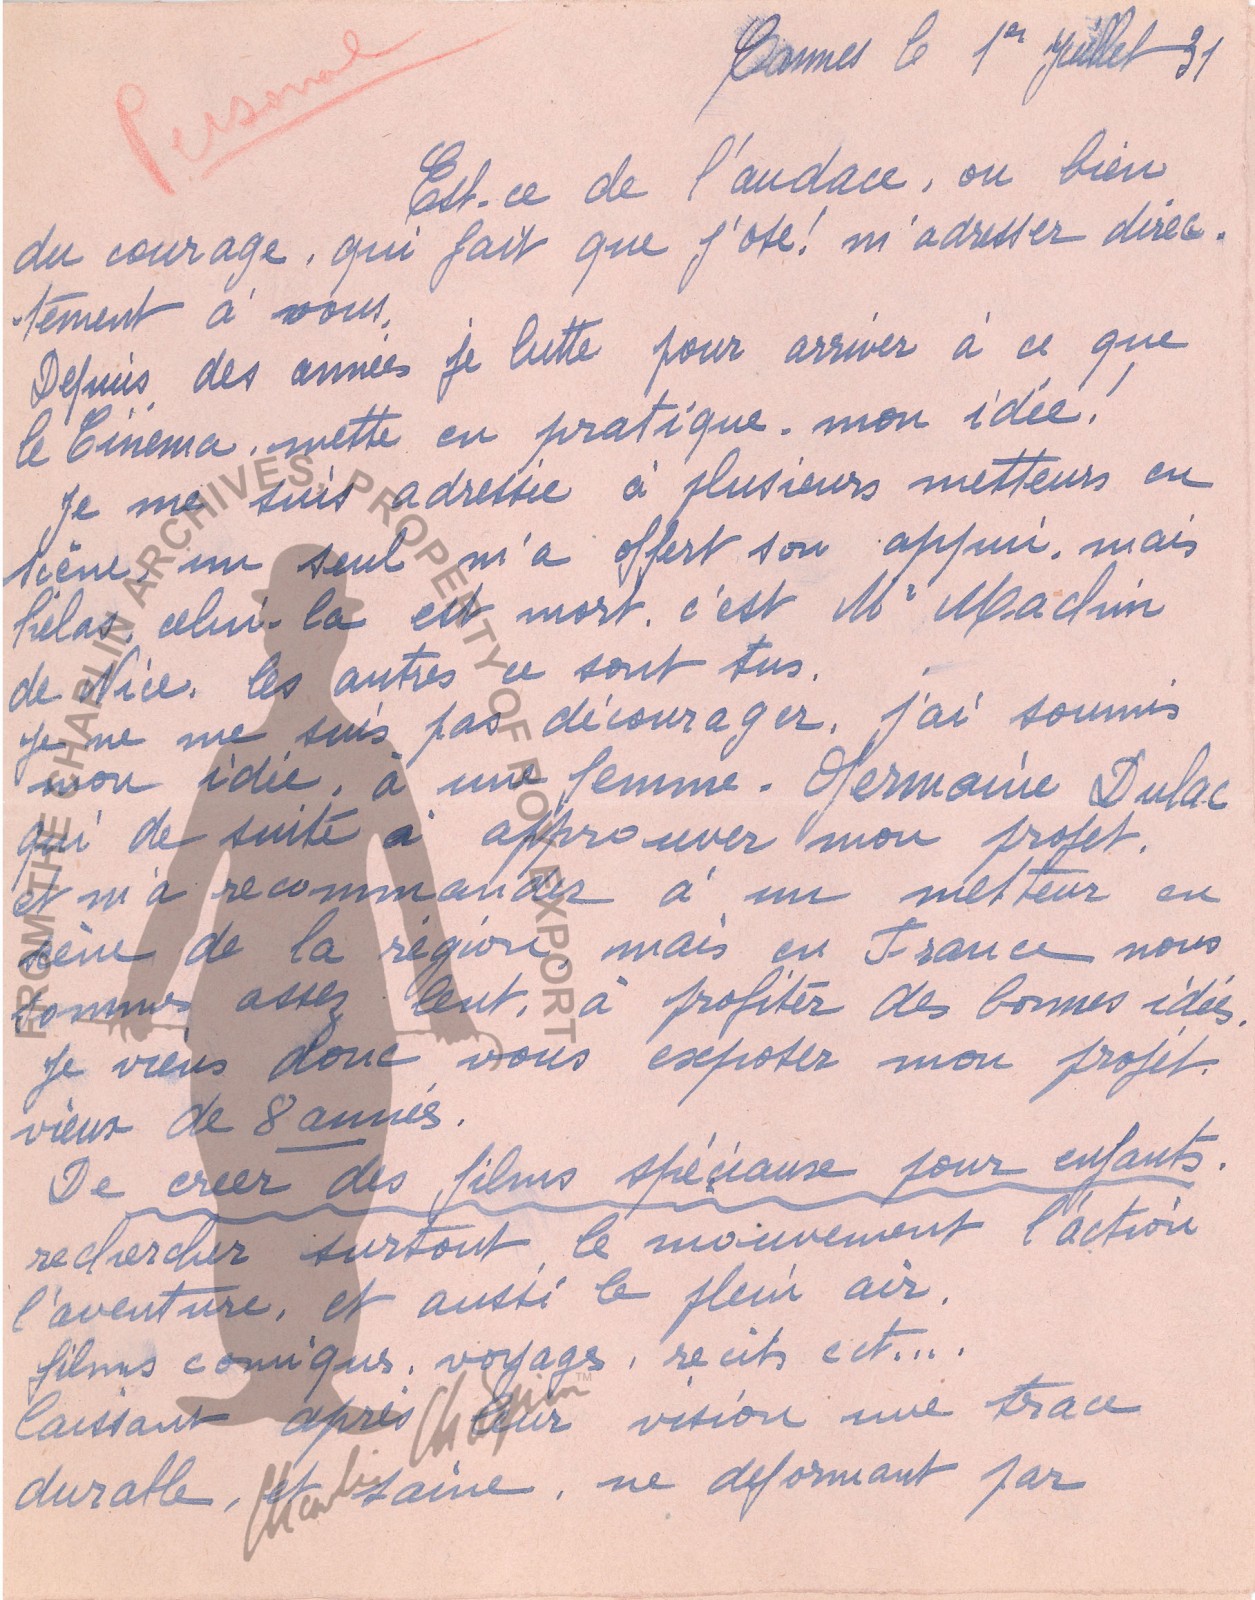 Personal
Cannes le 1er Juillet 31
Est-ce de l'audace, ou bien
du courage, qui fait que j'ose! m'adresser direc-
-tement à vous.
Depuis des années je lutte pour arriver à ce que
le Cinéma, mette en pratique. mon idée!
Je me suis adressée à plusieurs metteurs en
scène, un seul m'a offert son appui, mais
hélas, celui-la est mort, c'est Mr Machin
de Nice. les autres ce sont tus.
Je ne me suis pas décourager, j'ai soumis
mon idée, à une femme. Germaine Dulac
qui de suite à approuver mon projet,
et m'a recommander à un metteur en
scène de la région, mais en France nous
sommes assez lent, à profiter des bonnes idées.
Je viens donc vous exposer mon projet.
vieux de 8 années.
De creer des films spéciause pour enfants.
rechercher surtout le mouvement l'action
l'aventure, et aussi le plein air,
films comiques, voyages, recits ect....
laissant après leur vision une trace
durable, et saine, ne deformant par
FROM THE CHAPLIN ARCHIVES, PROPERTY OF ROY EXPORT
Charlie Chaplin™